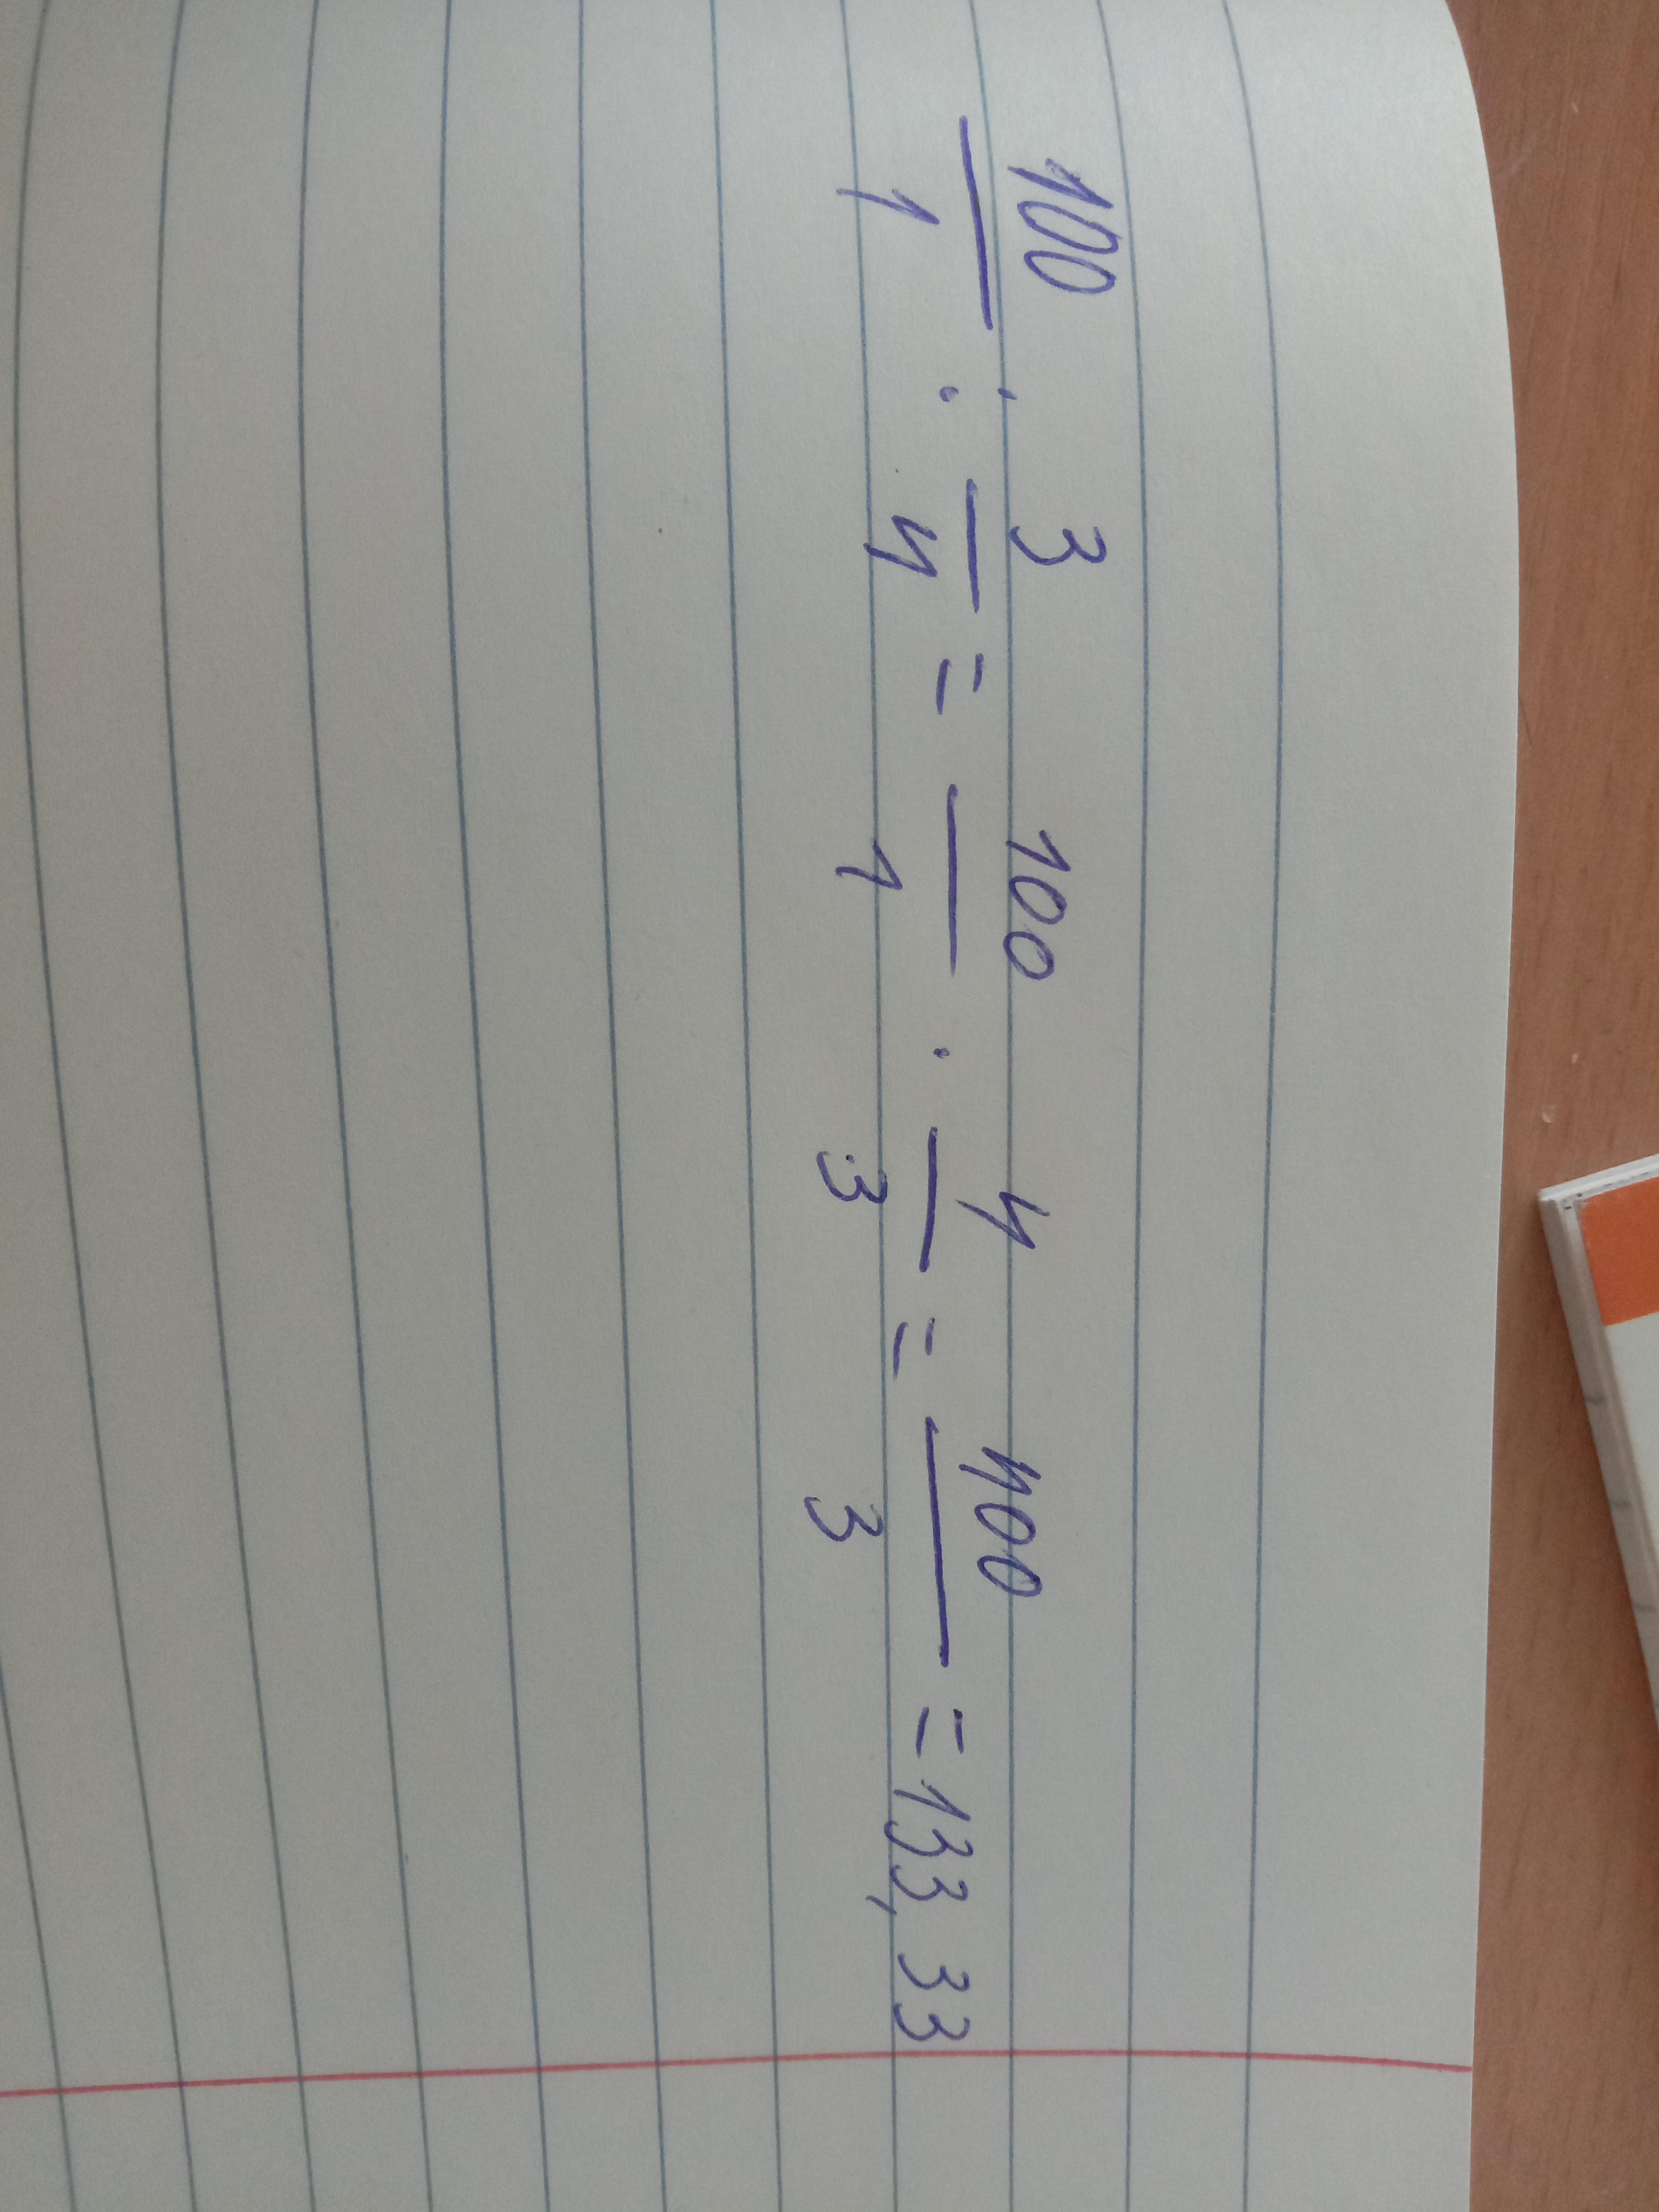 100/1 : 3/4 = 100/1 · 4/3 = 400/3 = 133,33